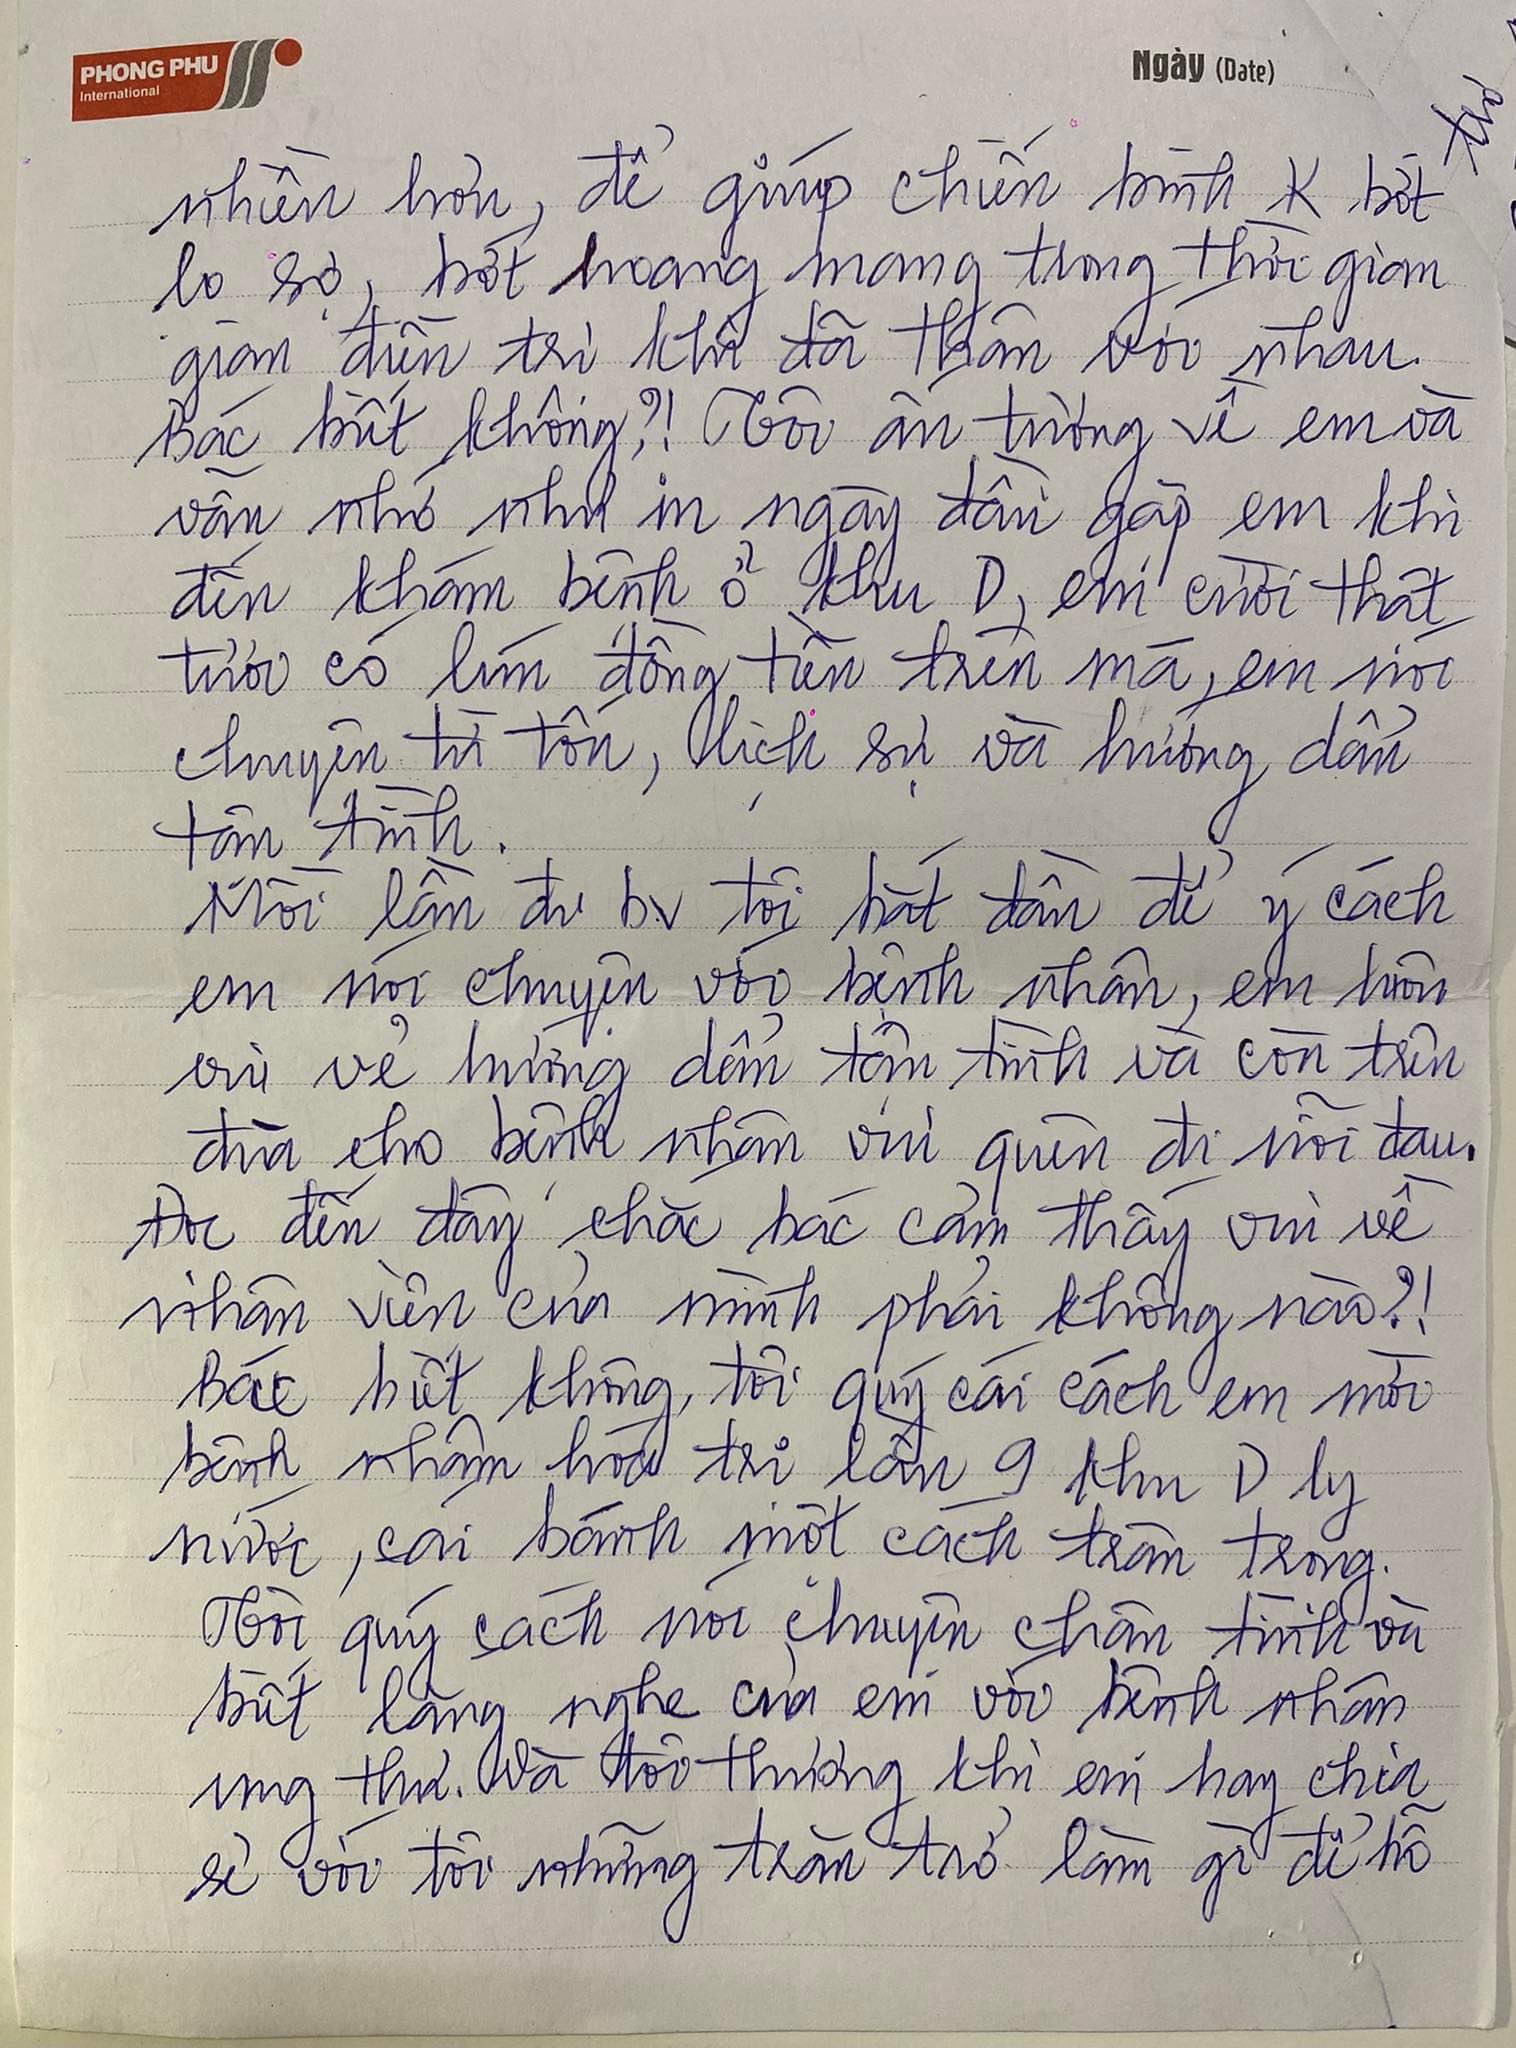 PHONG PHU
International
Ngày (Date)
nhiền hơn, để giúp chiến binh K bớt
lo sợ, bớt hoang mang trong thời gian
gian điều trị khi đã thân với nhau.
Bác biết không?! Tôi ấn tượng về em và
vẫn nhớ như in ngày đầu gặp em khi
đến khám bệnh ở khu D, em cười thật
tươi có lúm đồng tiền trên má, em nói
chuyện từ tốn, lịch sự và hướng dẩn
tận tình.
Mỗi lần đi bv tôi bắt đầu để ý cách
em nói chuyện với bệnh nhân, em luôn
vui vẻ hướng dẩn tận tình và còn trên
đùa cho bệnh nhân vui quên đi nỗi đau.
Đọc đến đây chắc bác cảm thấy vui về
nhân viên của mình phải không nào?!
Bác biết không, tôi quý cái cách em mời
bệnh nhân hóa trị lần 9 khu D ly
nước, cái bánh một cách trân trọng.
Tôi quý cách nói chuyện chân tình và
biết lắng nghe của em với bệnh nhân
ung thư. Và tôi thương khi em hay chia
sẻ với tôi những trăn trở làm gì để hỗ